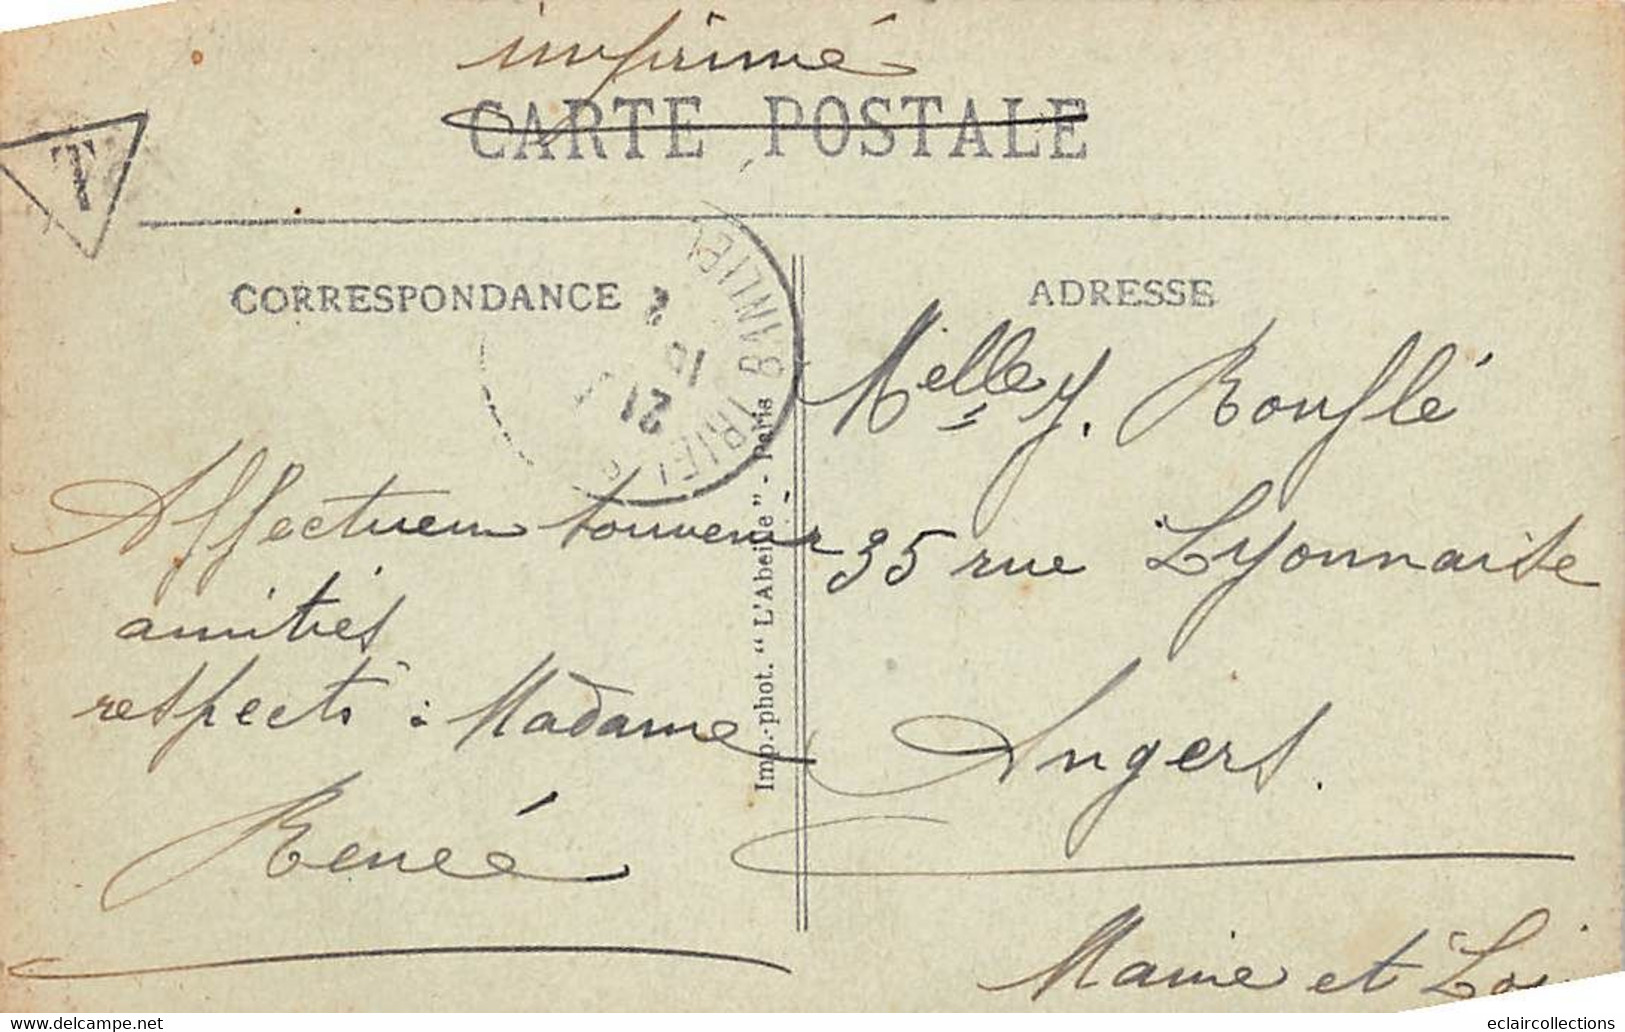 imprimé
CARTE POSTALE
T
CORRESPONDANCE
ADRESSE
TRIEL
21
10
Melle J. Rouflé
35 rue Lyonnaise
Angers.
Maine et Loi
Affectueux souvenir
amitiés
respects à Madame
Renée
Imp.-phot. "L'Abeille" - Paris
www.delcampe.net
eclaircollections